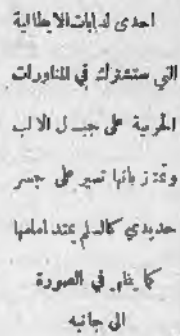 احدى الدبابات الايطالية
التي ستشترك في المناورات
الحربية على جبال الالب
وتمتاز بانها تسير على جسر
حديدي كالسلم يمتد امامها
كما يظهر في الصورة
الى جانبه